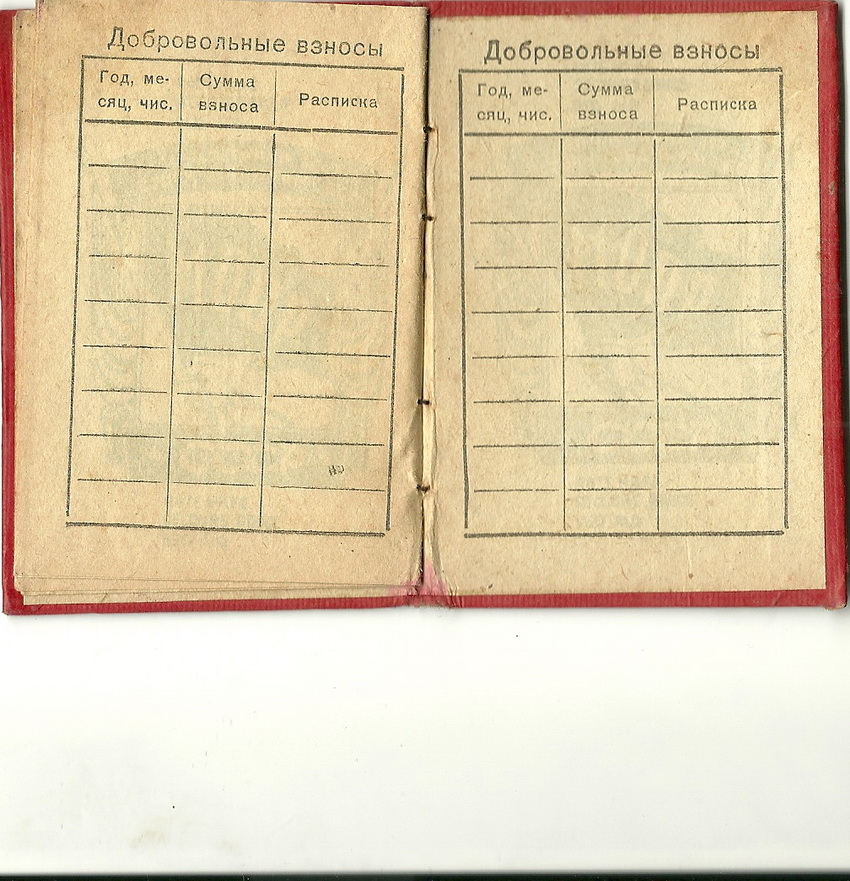 Добровольные взносы
Год, ме-
сяц, чис.
Сумма
взноса
Расписка
Добровольные взносы
Год, ме-
сяц, чис.
Сумма
взноса
Расписка